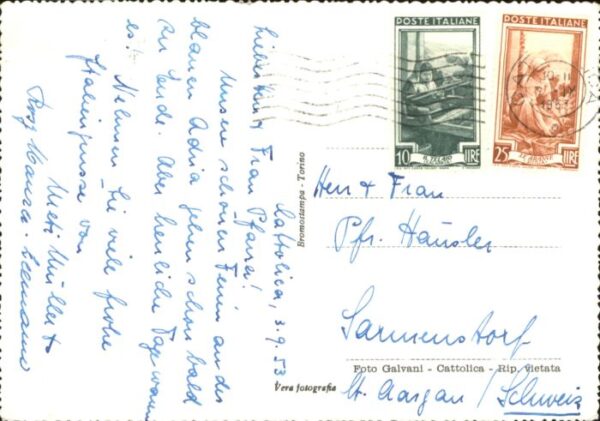 Cattolica, 3.9.53
Frau Pfarrer!
Unsere schönen Ferien an der
blauen Adria gehen schon bald
zu Ende. Aber herrliche Tage waren
es! Nehmen Sie viele frohe
Italiengrüsse von
Müller &
POSTE ITALIANE
10 IL TELAIO LIRE
POSTE ITALIANE
25 LE ARANCE LIRE
Bromostampa - Torino
Vera fotografia
Herr & Frau
Pfr. Häusler
Sarmenstorf
Foto Galvani - Cattolica - Rip. vietata
Kt. Aargau / Schweiz